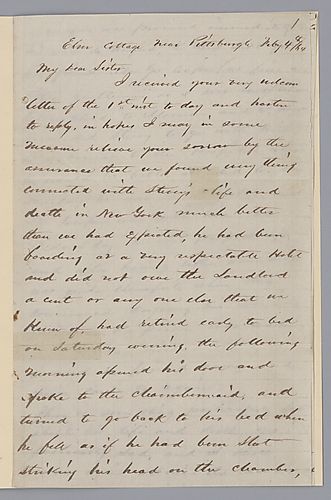 1
Elm Cottage Near Pittsburgh Feby 4th/64
My Dear Sister
I received your very welcom
letter of the 1st inst to day and hasten
to reply, in hopes I may in some
measure relieve your sorrow by the
assurance that we found every thing
connected with life and
death in New York much better
than we had Expected, he had been
boarding at a very respectable Hotel
and did not owe the Landlord
a cent or any one else that we
Know of, had retired early to bed
on Saturday evening, the following
morning opened his door and
spoke to the chambermaid, and
turned to go back to his bed when
he fell as if he had been Shot
striking his head on the chamber,